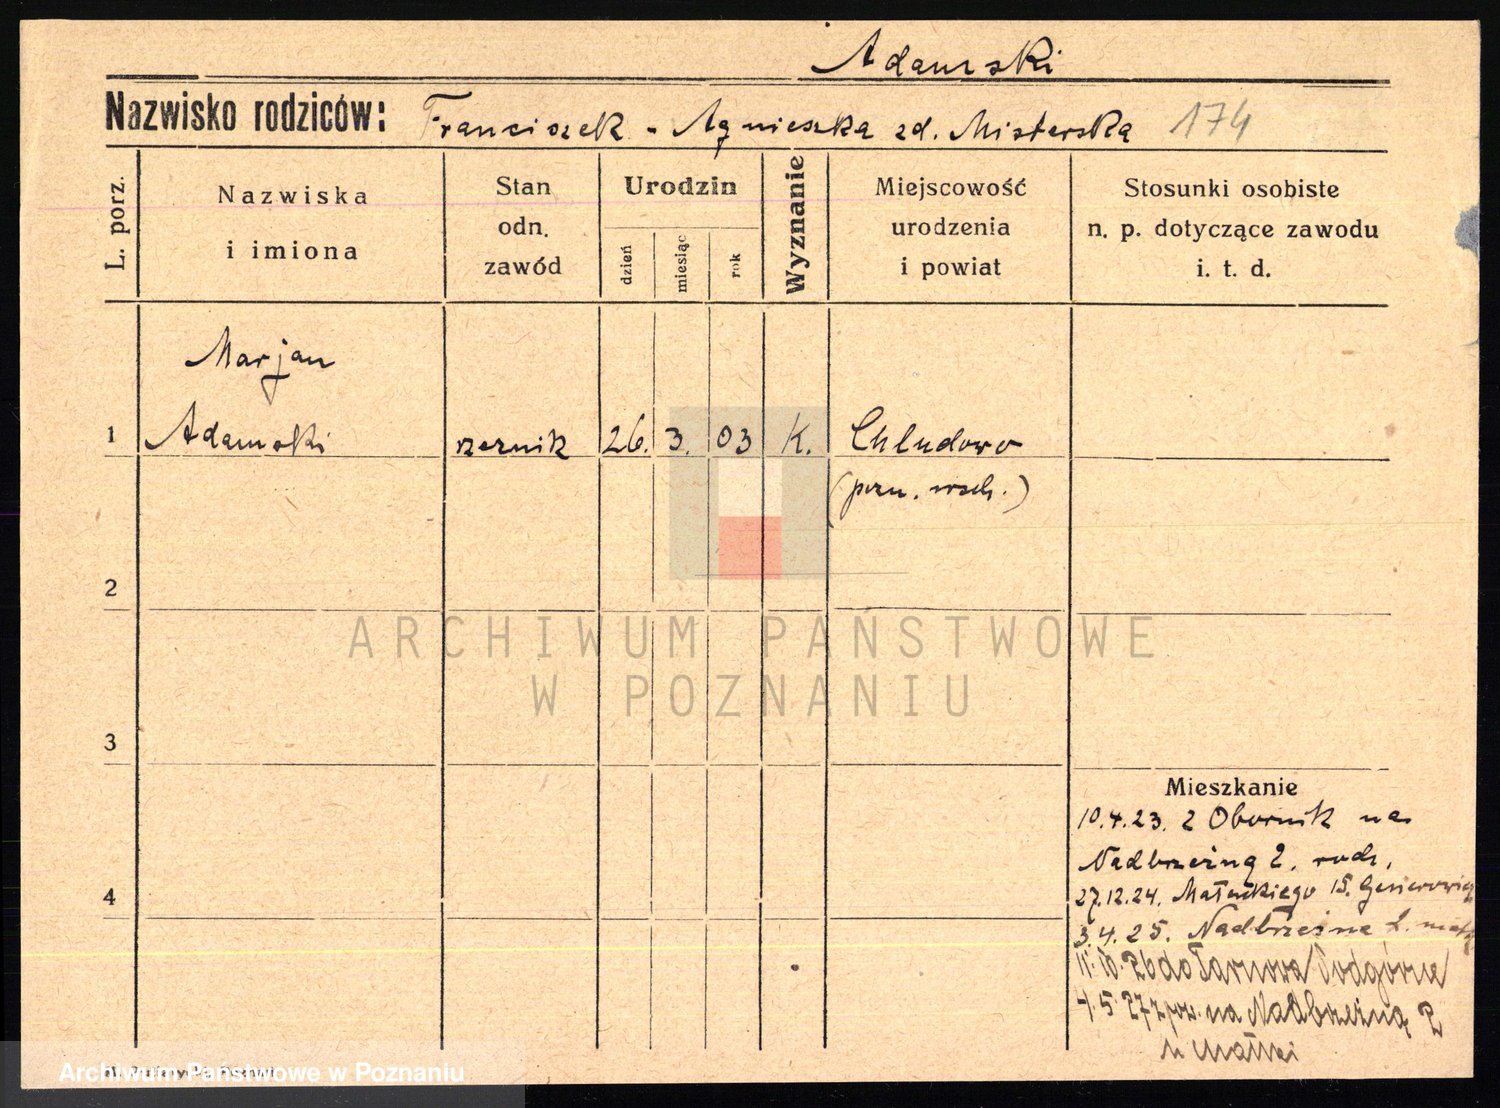 Adamski
Nazwisko rodziców: Franciszek - Agnieszka zd. Misterska 174
L. porz.
Nazwiska
i imiona
Stan
odn.
zawód
Urodzin
dzień
miesiąc
rok
Wyznanie
Miejscowość
urodzenia
i powiat
Stosunki osobiste
n. p. dotyczące zawodu
i. t. d.
Marjan
1 Adamski rzeznik 26. 3. 03 K. Chludowo
(pozn. wsch.)
2
ARCHIWUM PAŃSTWOWE
W POZNANIU
3
4
Mieszkanie
10.4.23. z Obornik na
Nadbrzeżną 2. rodz.
27.12.24. Małeckiego 15.
3.4.25. Nadbrzeżna 2.
11.10.26 do Podgórna
4.5.27 z poz. na Nadbrzeżną 2
Archiwum Państwowe w Poznaniu